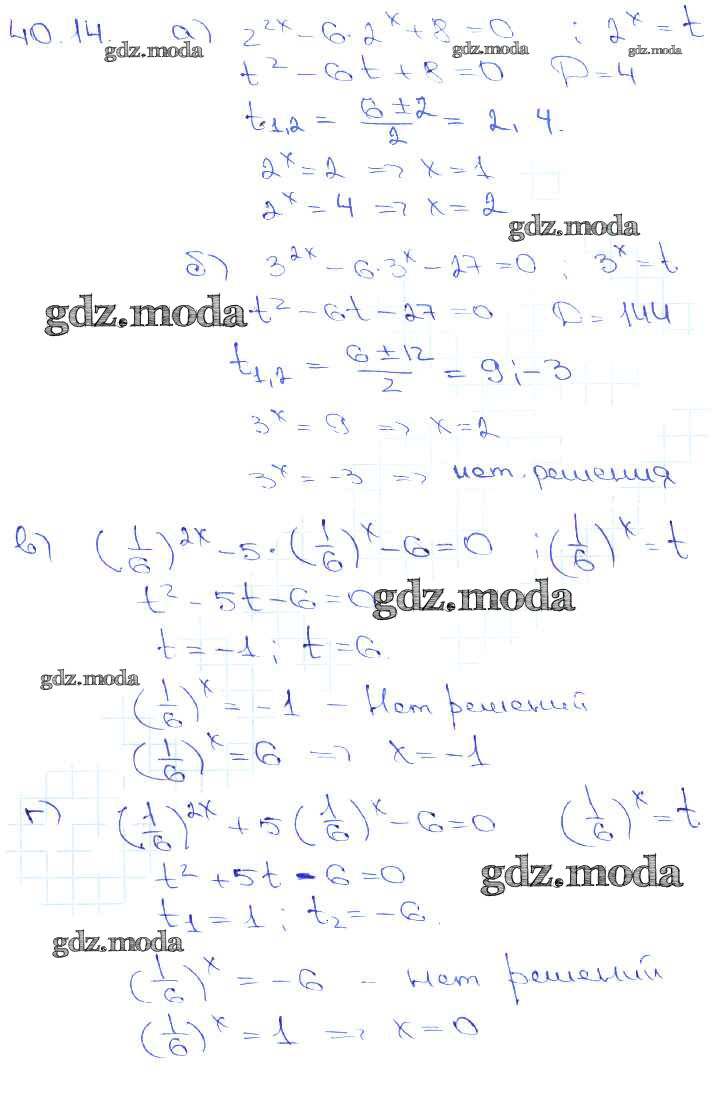 40.14. а) 2^{2x} - 6·2^x + 8 = 0 ; 2^x = t
gdz.moda gdz.moda gdz.moda
t² - 6t + 8 = 0 D = 4
t_{1,2} = (6 ± 2)/2 = 2, 4.
2^x = 2 => x = 1
2^x = 4 => x = 2
gdz.moda
б) 3^{2x} - 6·3^x - 27 = 0 ; 3^x = t
gdz.moda t² - 6t - 27 = 0 D = 144
t_{1,2} = (6 ± 12)/2 = 9 ; -3
3^x = 9 => x = 2
3^x = -3 => нет. решения
в) (1/6)^{2x} - 5·(1/6)^x - 6 = 0 ; (1/6)^x = t
t² - 5t - 6 = 0 gdz.moda
t = -1 ; t = 6.
gdz.moda
(1/6)^x = -1 - Нет решений
(1/6)^x = 6 => x = -1
г) (1/6)^{2x} + 5(1/6)^x - 6 = 0 (1/6)^x = t
t² + 5t - 6 = 0 gdz.moda
t_1 = 1 ; t_2 = -6.
gdz.moda
(1/6)^x = -6 - нет решений
(1/6)^x = 1 => x = 0